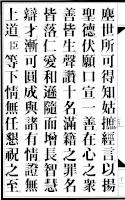 塵世所可得知姑摭經言以揚
聖德伏願口宣一善在心之衆
善皆生聲讚十名滿籍之罪名
皆落仁愛和遜隨而增長智慧
辯才漸可圓成與諸有情證無
上道臣等下情無任懇祝之至